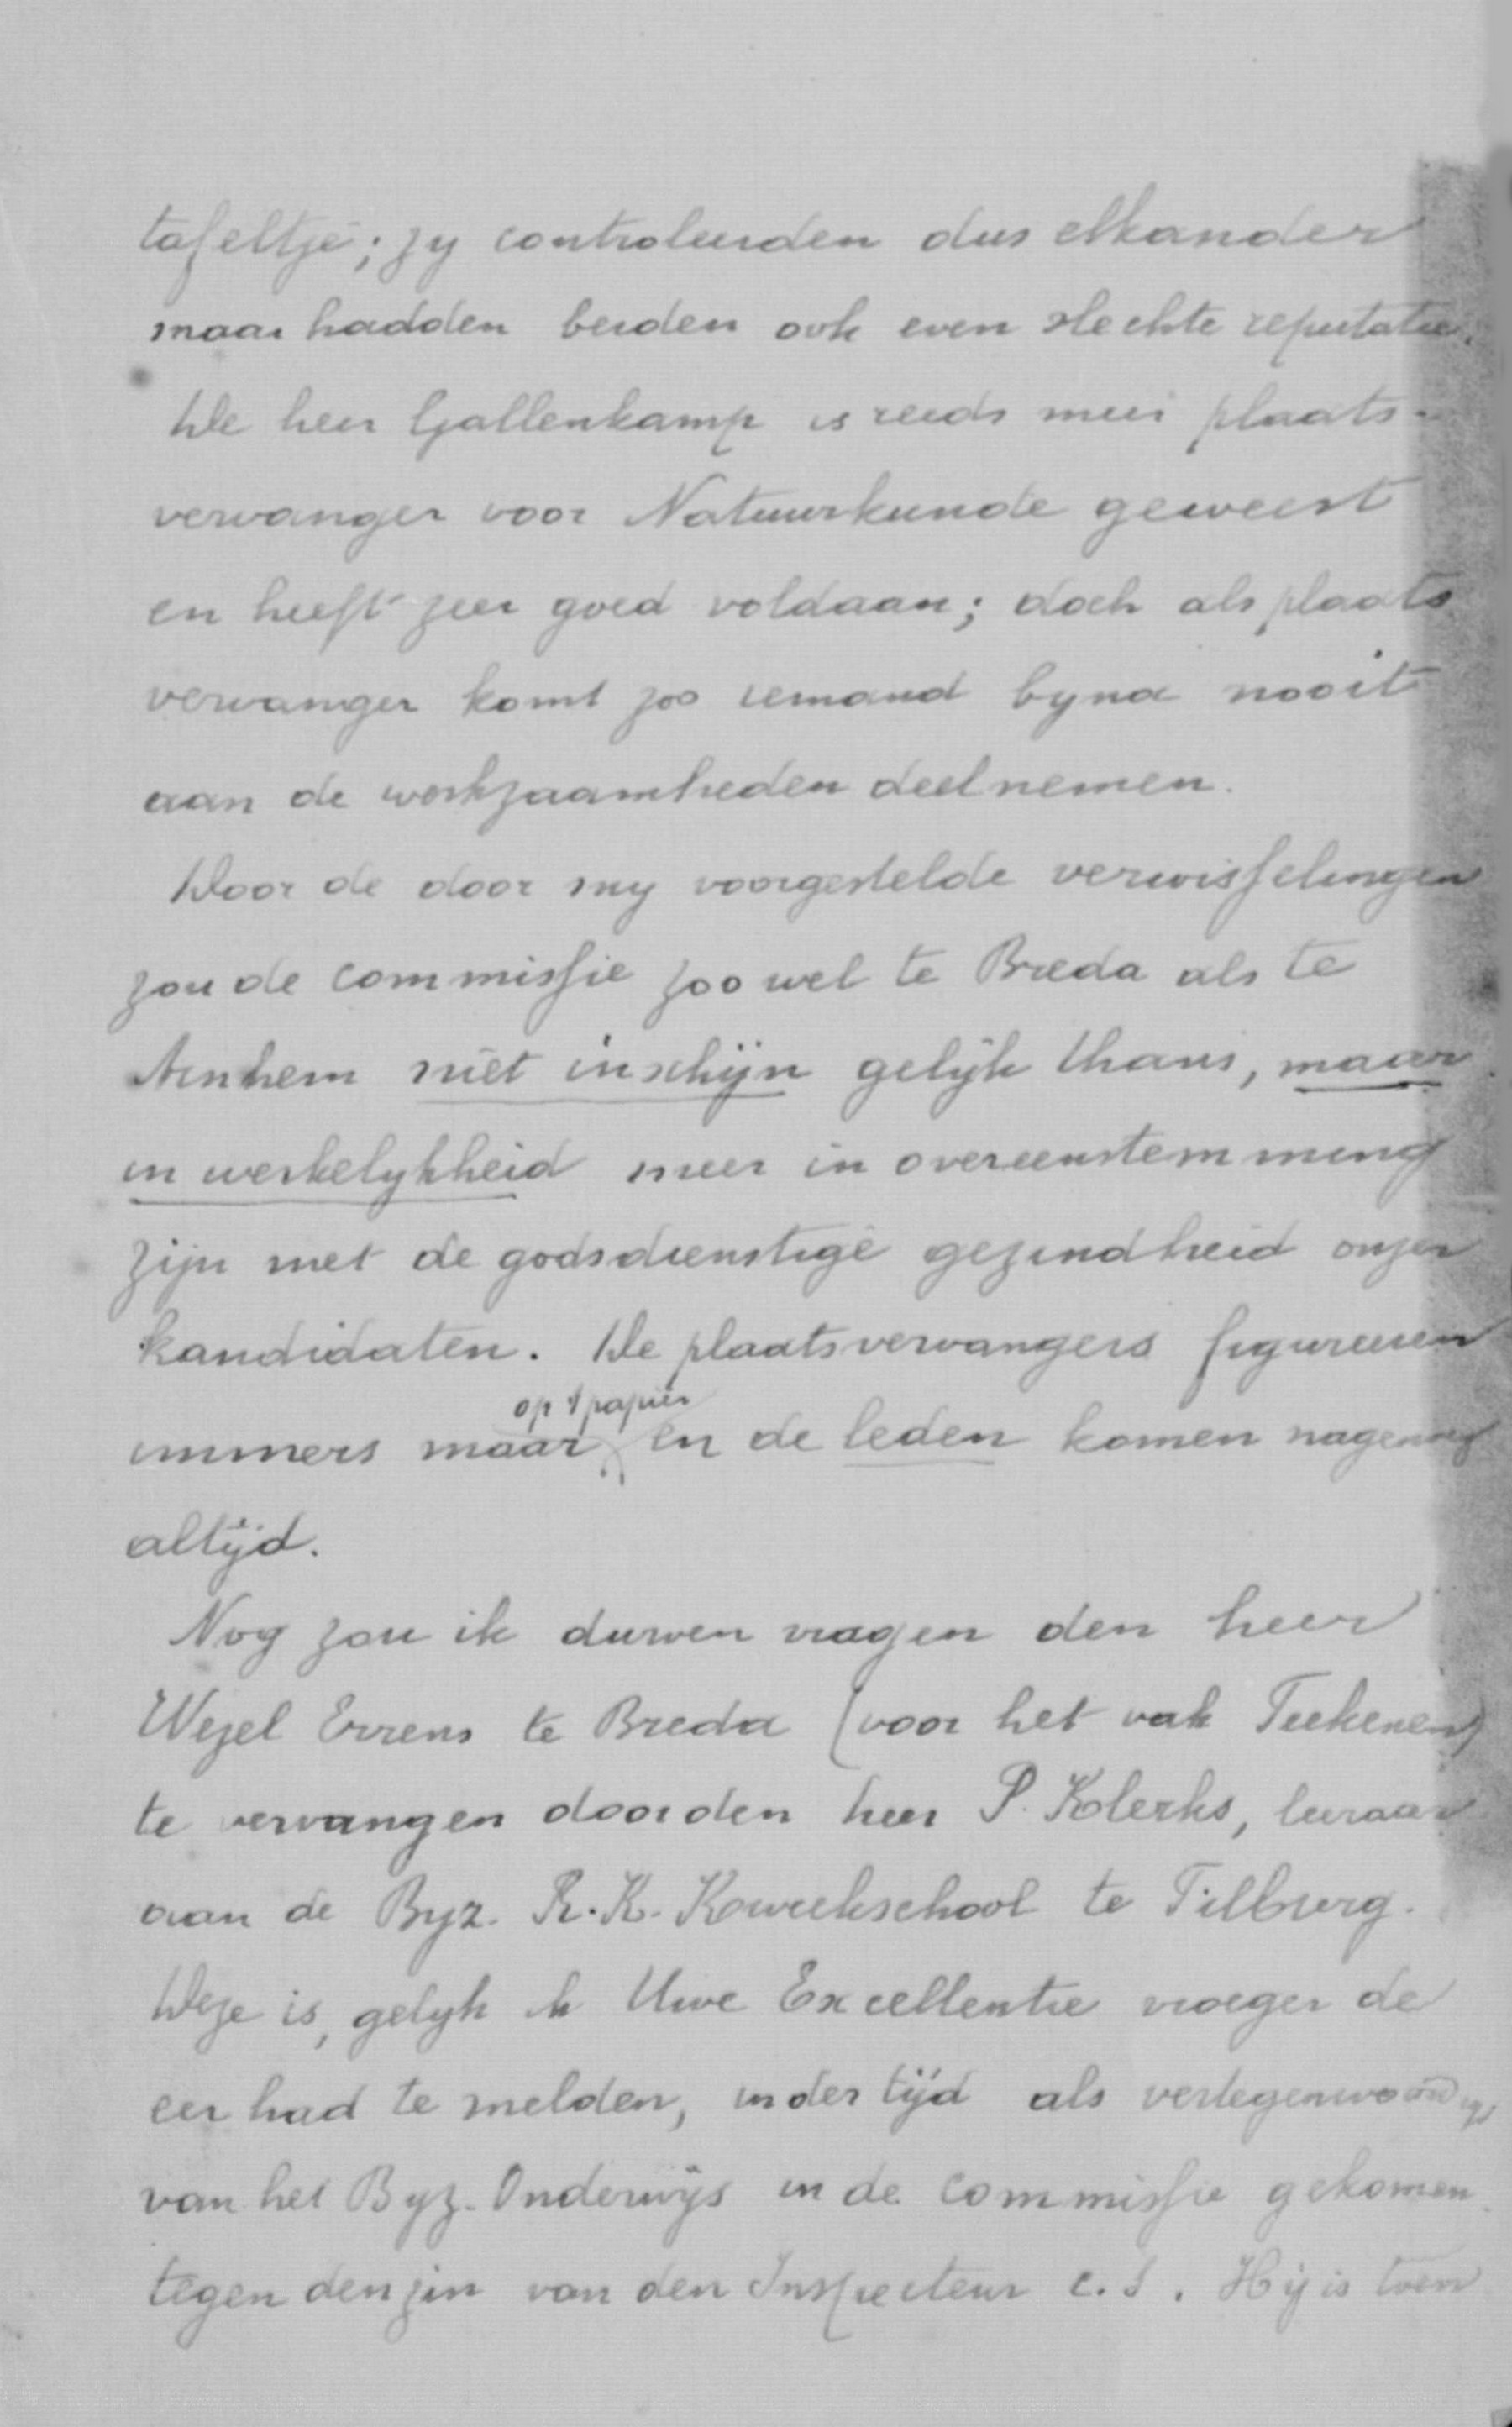 tafeltje; zy controleerden dus elkander
maar hadden beiden ook even slechte reputatie.
De heer Gallenkamp is reeds meer plaats-
vervanger voor Natuurkunde geweest
en heeft zeer goed voldaan; doch als plaats
vervanger komt zoo iemand byna nooit
aan de werkzaamheden deelnemen.
Door de door my voorgestelde verwisselingen
zou de commissie zoo wel te Breda als te
Arnhem niet in schijn gelijk thans, maar
in werkelykheid meer in overeenstemming
zijn met de godsdienstige gezindheid onzer
kandidaten. De plaatsvervangers figureeren
op 't papier
immers maar en de leden komen nagenoeg
altijd.
Nog zou ik durven vragen den heer
Wezel Errens te Breda (voor het vak Teekenen)
te vervangen door den heer P. Klerks, leeraar
aan de Byz. R.K. Kweekschool te Tilburg.
Deze is, gelyk ik Uwe Excellentie vroeger de
eer had te melden, indertijd als vertegenwoordiger
van het Byz. Onderwijs in de commissie gekomen
tegen den zin van den Inspecteur c.s. Hij is toen